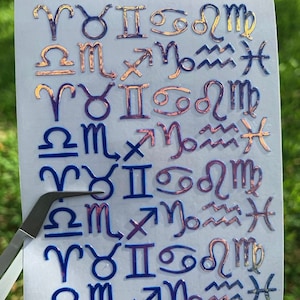 ♈♉♊♋♌♍
♎♏♐♑♒♓
♈♉♊♋♌♍
♎♏♐♑♒♓
♈♉♊♋♌♍
♎♏♐♑♒♓
♈♉♊♋♌♍
♎♏♐♑♒♓